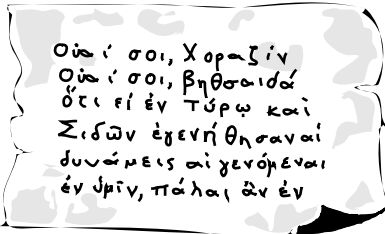 Οὐαί σοι, Χοραζίν
Οὐαί σοι, βηθσαιδά
ὅτι εἰ ἐν τύρῳ καὶ
Σιδῶν ἐγενήθησαν αἱ
δυνάμεις αἱ γενόμεναι
ἐν ὑμῖν, πάλαι ἂν ἐν